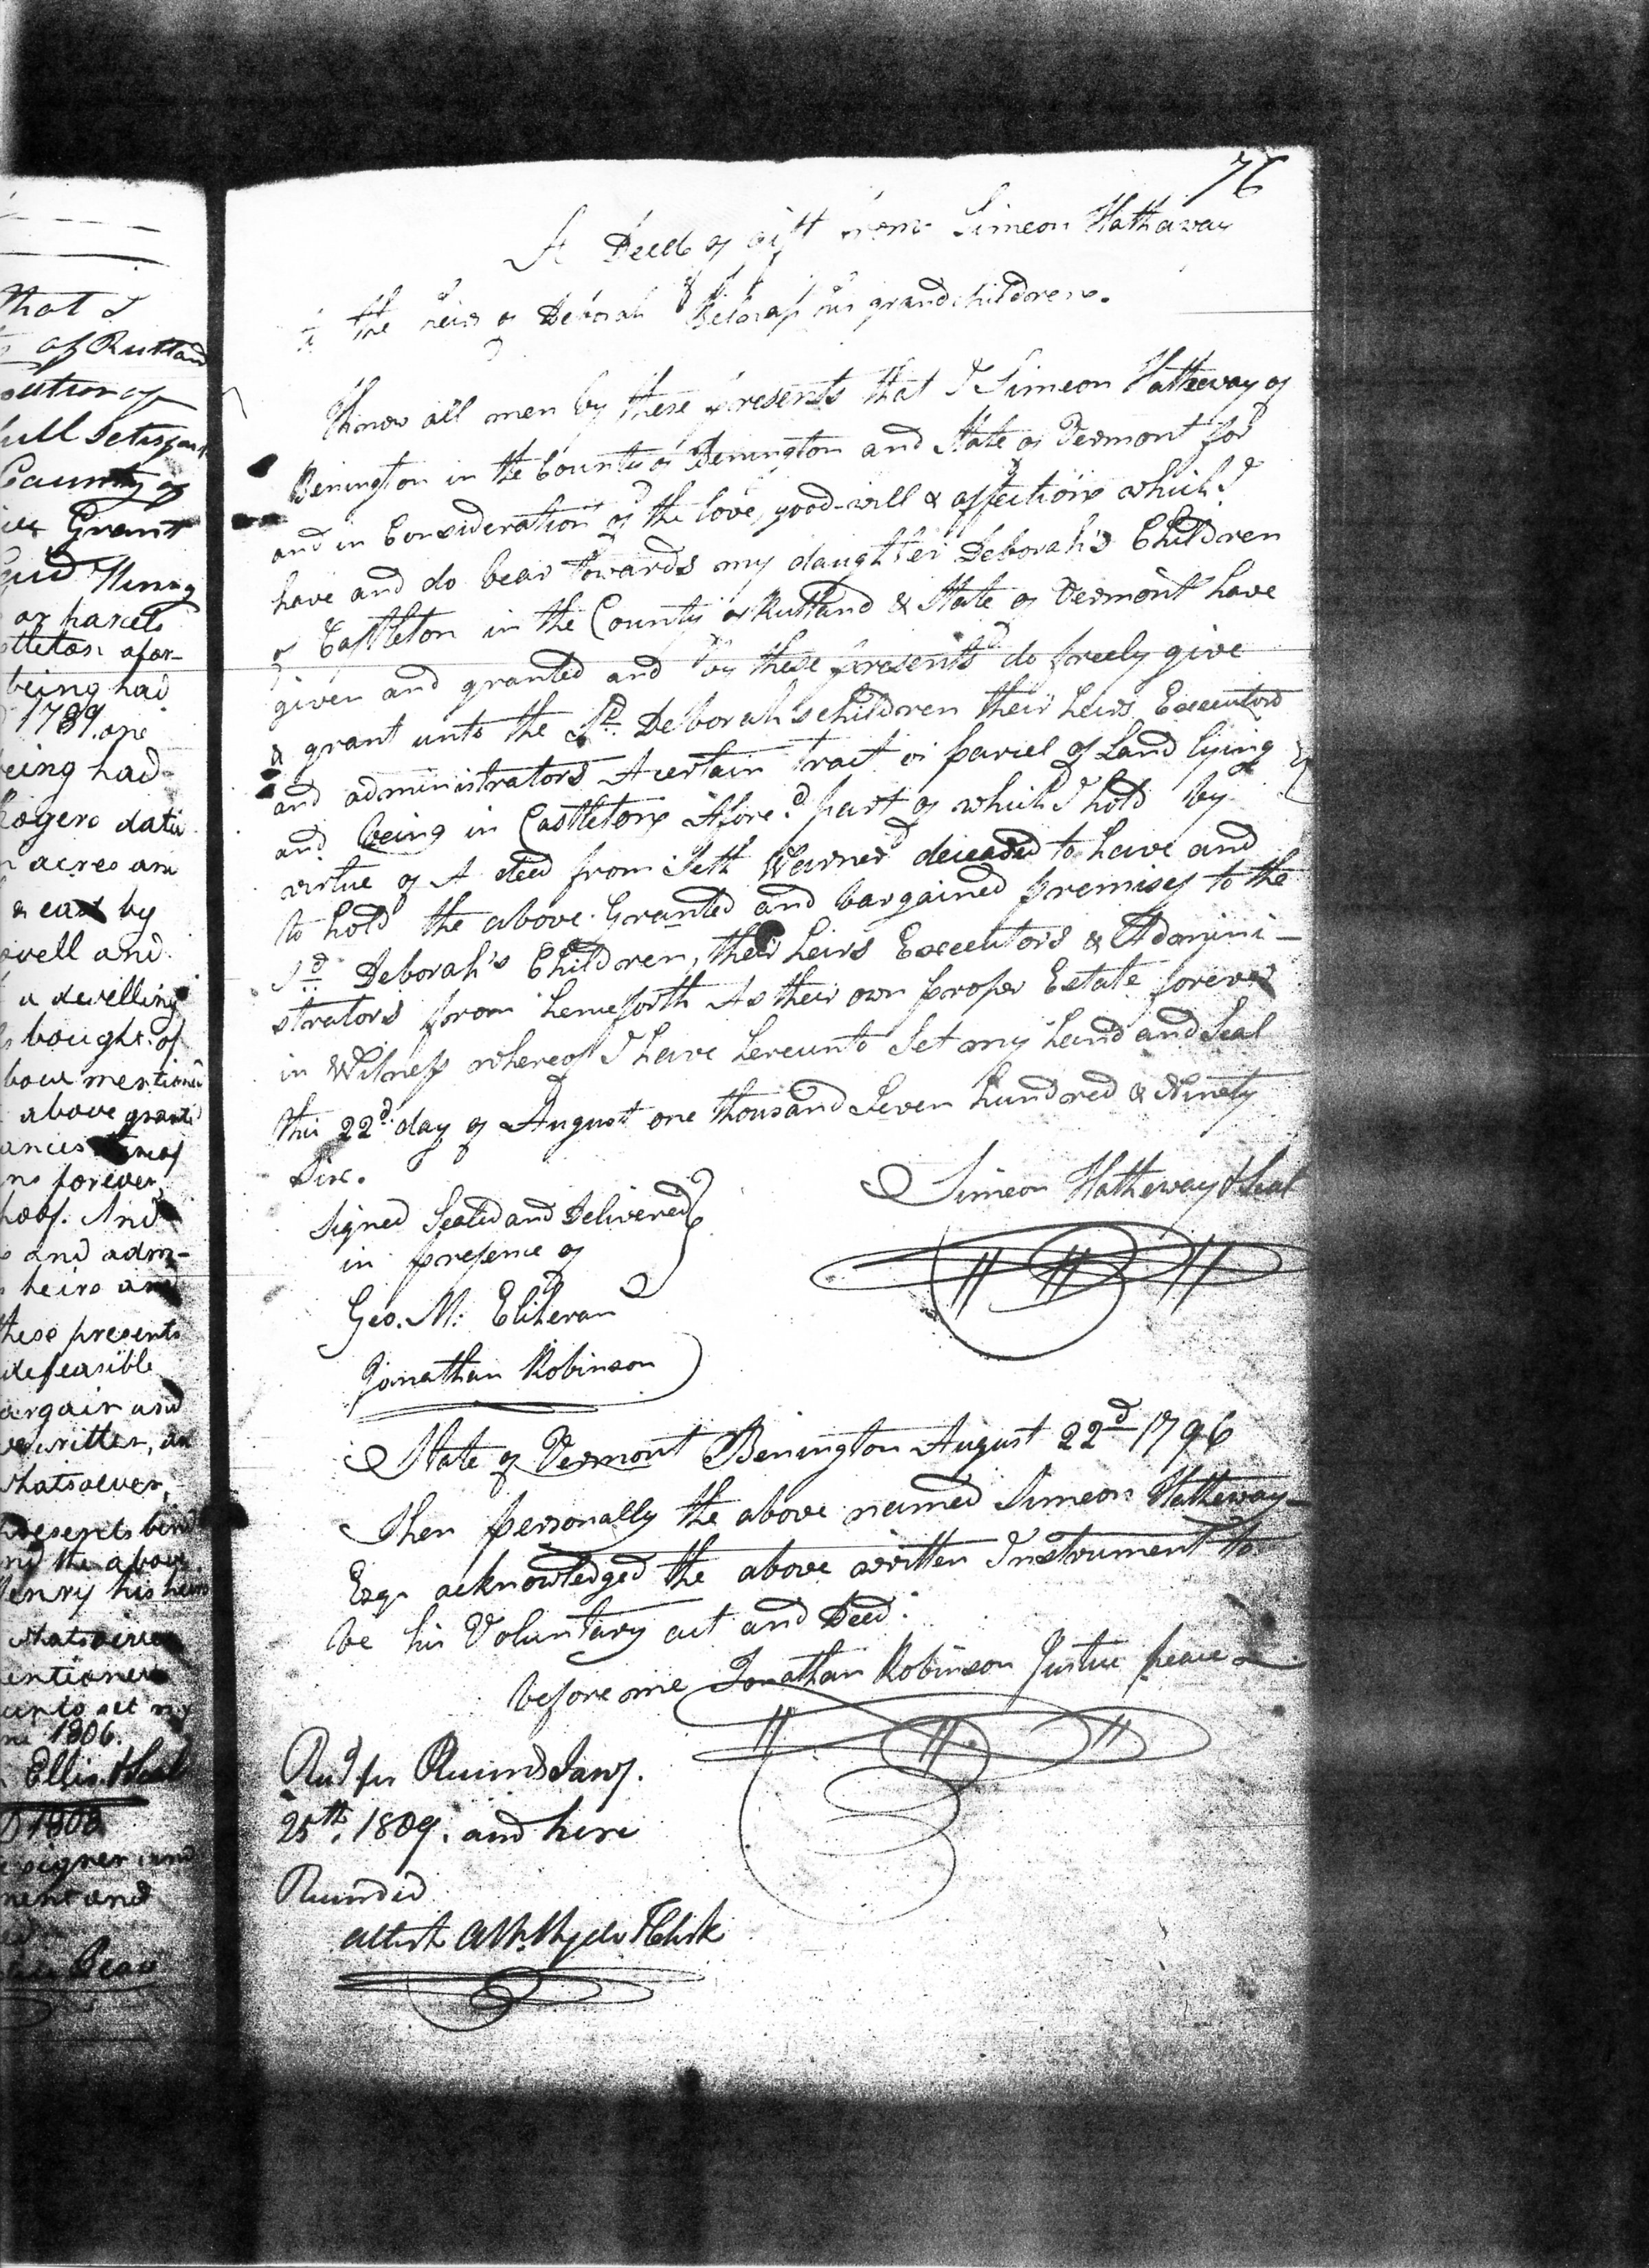 that I
of Rutland
full Satisfact
County of
Grant
said Henry
or parcels
being had
1789. one
being had
Rogers
acres
& east by
well and
a dwelling
bought of
above mentioned
above grant
forever,
and adm-
heirs and
these presents
indefeasible
bargain and
written,
whatsoever,
presents bind
and the above
Henry his heirs
whatsoever
set my
1806.
Ellis & Seal
signer and
76
A Deed of gift from Simeon Hathaway
to the heirs of Deborah Belnap his grandchildren.
Know all men by these presents that I Simeon Hatheway of
Benington in the County of Benington and State of Vermont for
and in Consideration of the love, good-will & affection which I
have and do bear towards my daughter Deborah's Children
of Castleton in the County of Rutland & State of Vermont have
given and granted and by these presents do freely give
& grant unto the Sd. Deborah's children their heirs Executors
and administrators A certain tract or parcel of Land lying
and being in Castleton Afored. part of which I hold by
virtue of A deed from Seth Warner deceased to have and
to hold the above Granted and bargained premises to the
Sd. Deborah's Children, their heirs Executors & Admini-
strators from henceforth As their own proper Estate forever
in Witness whereof I have hereunto Set my hand and Seal
this 22d. day of August one thousand Seven hundred & Ninety
Six.
Simeon Hatheway & Seal
Signed Sealed and Delivered
in presence of
Geo. M:
Jonathan Robinson
State of Vermont Benington August 22d 1796
Then personally the above named Simeon Hatheway
Esqr acknowledged the above written Instrument to
be his Voluntary act and Deed.
before me Jonathan Robinson Justice peace
Recd for Record Jany.
25th. 1809. and here
Recorded
attest Hyde T Clerk